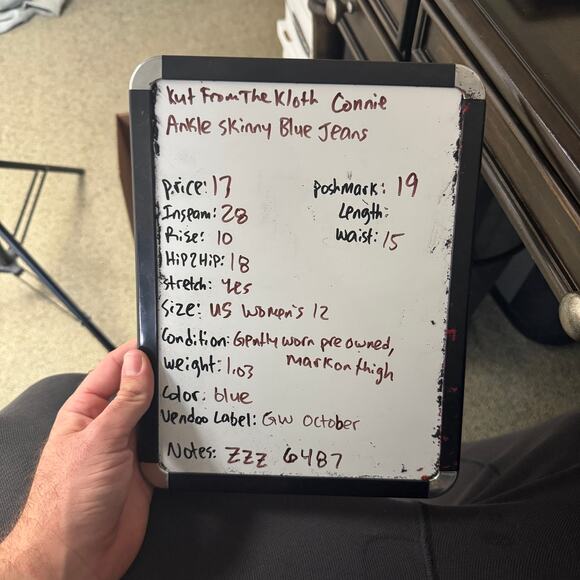 Kut From The Kloth Connie
Ankle Skinny Blue Jeans
price: 17
Poshmark: 19
Inseam: 28
Length:
Rise: 10
Waist: 15
HiP2HiP: 18
Stretch: Yes
Size: US Women's 12
Condition: Gently worn pre owned,
Mark on thigh
Weight: 1.03
Color: blue
Vendoo Label: GW October
Notes: ZZZ 6487